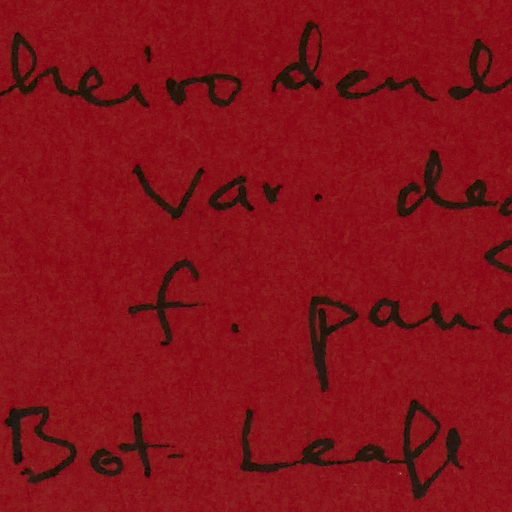 heirodend
Var. de
f. pan
Bot. Leafl